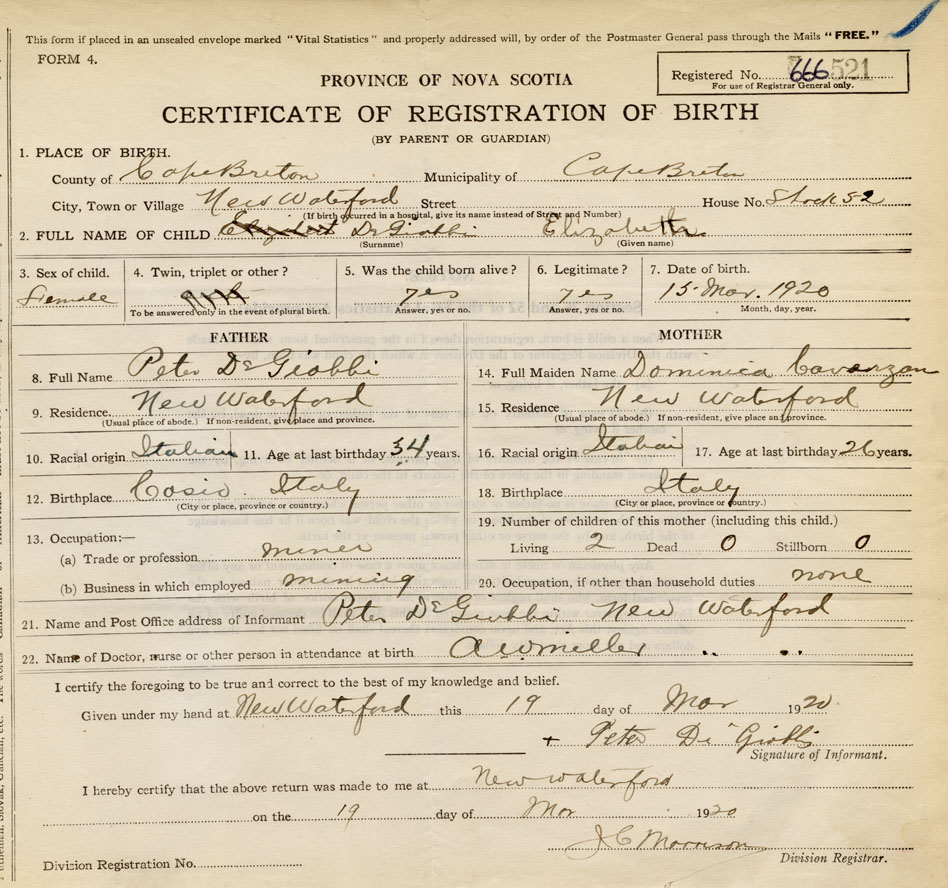 This form if placed in an unsealed envelope marked "Vital Statistics" and properly addressed will, by order of the Postmaster General pass through the Mails "FREE."
FORM 4.
PROVINCE OF NOVA SCOTIA
Registered No. 666 521
For use of Registrar General only.
CERTIFICATE OF REGISTRATION OF BIRTH
(BY PARENT OR GUARDIAN)
1. PLACE OF BIRTH.
County of Cape Breton Municipality of Cape Breton
City, Town or Village New Waterford Street House No. Shack 52
(If birth occurred in a hospital, give its name instead of Street and Number)
2. FULL NAME OF CHILD De Giobbi Elizabeth
(Surname) (Given name)
3. Sex of child. 4. Twin, triplet or other? 5. Was the child born alive? 6. Legitimate? 7. Date of birth.
Female yes yes 15 Mar. 1920
To be answered only in the event of plural birth. Answer, yes or no. Answer, yes or no. Month, day, year.
FATHER
8. Full Name Peter De Giobbi
9. Residence. New Waterford
(Usual place of abode.) If non-resident, give place and province.
10. Racial origin Italian 11. Age at last birthday 34 years.
12. Birthplace Cosio. Italy
(City or place, province or country.)
13. Occupation:—
(a) Trade or profession miner
(b) Business in which employed mining
MOTHER
14. Full Maiden Name Dominica Cavarzan
15. Residence New Waterford
(Usual place of abode.) If non-resident, give place and province.
16. Racial origin Italian 17. Age at last birthday 26 years.
18. Birthplace Italy
(City or place, province or country.)
19. Number of children of this mother (including this child.)
Living 2 Dead 0 Stillborn 0
20. Occupation, if other than household duties none
21. Name and Post Office address of Informant Peter De Giobbi New Waterford
22. Name of Doctor, nurse or other person in attendance at birth A W Miller " "
I certify the foregoing to be true and correct to the best of my knowledge and belief.
Given under my hand at New Waterford this 19 day of Mar 1920
+ Peter Di Giobbi
Signature of Informant.
I hereby certify that the above return was made to me at New Waterford
on the 19 day of Mar 1920
J C Morrison
Division Registrar.
Division Registration No.